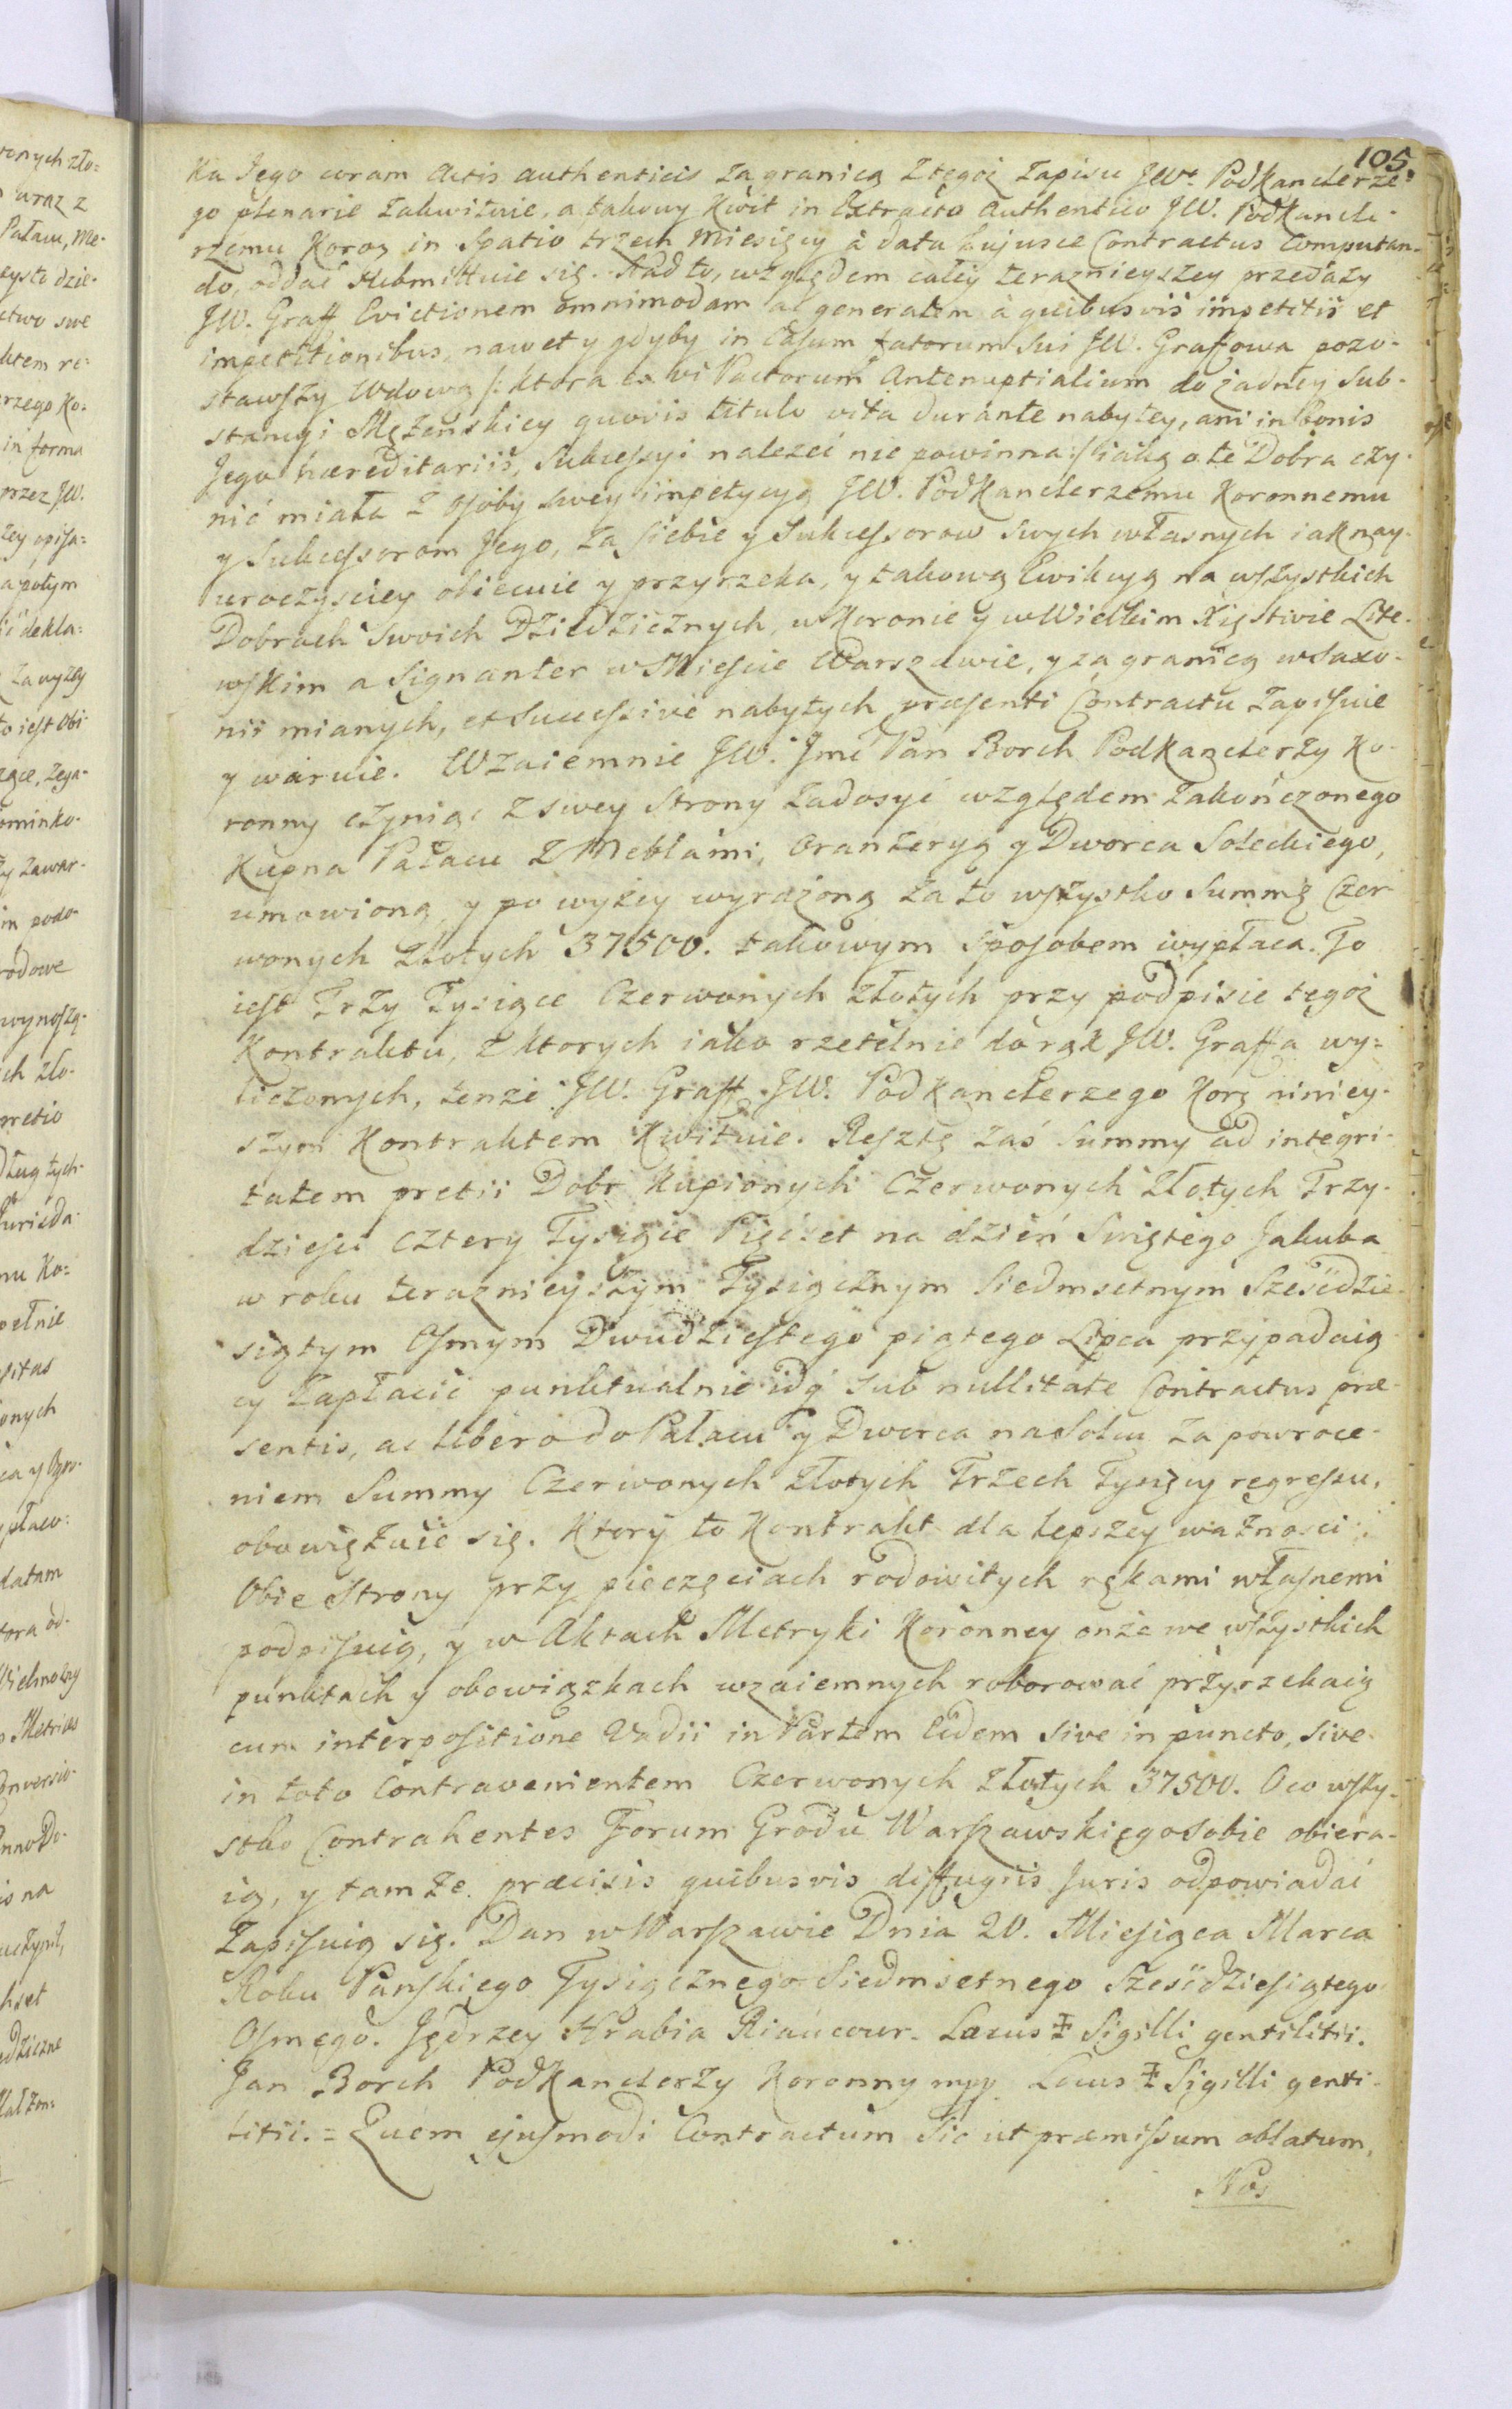 105
ka Jego coram Actis authenticis za granicą z tegoż zapisu JWo Podkanclerze-
go plenarie zakwituie, a takowy kwit in Extracto authentico JW. Podkancle-
rzemu Koroą in Spatio trzech Miesięcy à data hujusce Contractus computan-
do, oddać submittuie się. Nad to, względem całey teraznieyszey przedaży
JW. Graff Evictionem omnimodam ac generalem à quibusvis impetitis et
impetitionibus, nawet y gdyby in Casum fatorum Sui JW. Grafowa pozo-
stawszy Wdową /: ktora ex vi Pactorum Antenuptialium do żadney Sub-
stancyi Mężenskiey quovis titulo vita durante nabytey, ani in bonis
Jego hæreditariis, Sukcessyi nalezeć nie powinna :/ iaką o te Dobra czy-
nić miała z osoby swey impetycyą JW. Podkanclerzemu Koronnemu
y Sukcessorom Jego, za siebie y Sukcessorow swych własnych iaknay-
uroczysciey obiecuie y przyrzeka, y takową Ewikcyą na wszystkich
Dobrach Swoich Dziedzicznych, w Koronie y w Wielkim Xięstwie Lite-
wskim a Signanter w Miescie Warszawie, y za granicą w Saxo-
nii mianych, et Successive nabytych præsenti Contractu zapisuie
y waruie. Wzaiemnie JW. Jmć Pan Borch Podkanclerzy Ko-
ronny czyniąc z swey strony zadosyć względem zakończonego
Kupna Pałacu z Meblami, Oranżeryą y Dworca Soleckiego,
umowioną, y po wyżey wyrażoną za to wszystko Summę Czer-
wonych Złotych 37500. takowym sposobem wypłaca. To
iest Trzy Tysiące Czerwonych Złotych przy podpisie tegoż
Kontraktu, z ktorych iako rzetelnie do rąk JW. Graffa wy=
liczonych, tenże JW. Graff JW. Podkanclerzego Korą niniey-
szym Kontraktem kwituie. Resztę zaś Summy ad integri-
tatem pretii Dobr kupionych Czerwonych Złotych Trzy-
dziesci cztery Tysiące Pięćset na dzień Swiętego Jakuba
w roku teraznieyszym Tysiącznym Siedmsetnym Sześćdzie-
siątym Osmym Dwudziestego piątego Lipca przypadaią-
cy zapłacić punktualnie idq sub nullitate Contractus præ-
sentis, ac libero do Pałacu y Dworca na Solcu za powroce-
niem Summy Czerwonych Złotych Trzech Tysięcy regressu,
obowiązuie się. Ktory to Kontrakt dla lepszey ważnosci
Obie strony przy pieczęciach rodowitych rękami własnemi
podpisuią, y w Aktach Metryki Koronney onże we wszystkich
punktach y obowiązkach wzaiemnych roborować przyrzekaią
cum interpositione Vadii in Partem Eidem sive in puncto, sive
in toto Contravenientem Czerwonych Złotych 37500. O co wszy-
stko Contrahentes Forum Grodu Warszawskiego sobie obiera-
ią, y tamże præcisis quibusvis diffugiis Juris odpowiadać
zapisuią się. Dan w Warszawie Dnia 20. Miesiąca Marca
Roku Panskiego Tysiącznego Siedmsetnego Sześćdziesiątego
Osmego. Jędrzey Hrabia Riaucour. Locus ‡ Sigilli gentilitii.
Jan Borch Podkanclerzy Koronny mpp Locus ‡ Sigilli genti-
litii. = Quem ejusmodi Contractum sic ut præmissum oblatum,
Nos